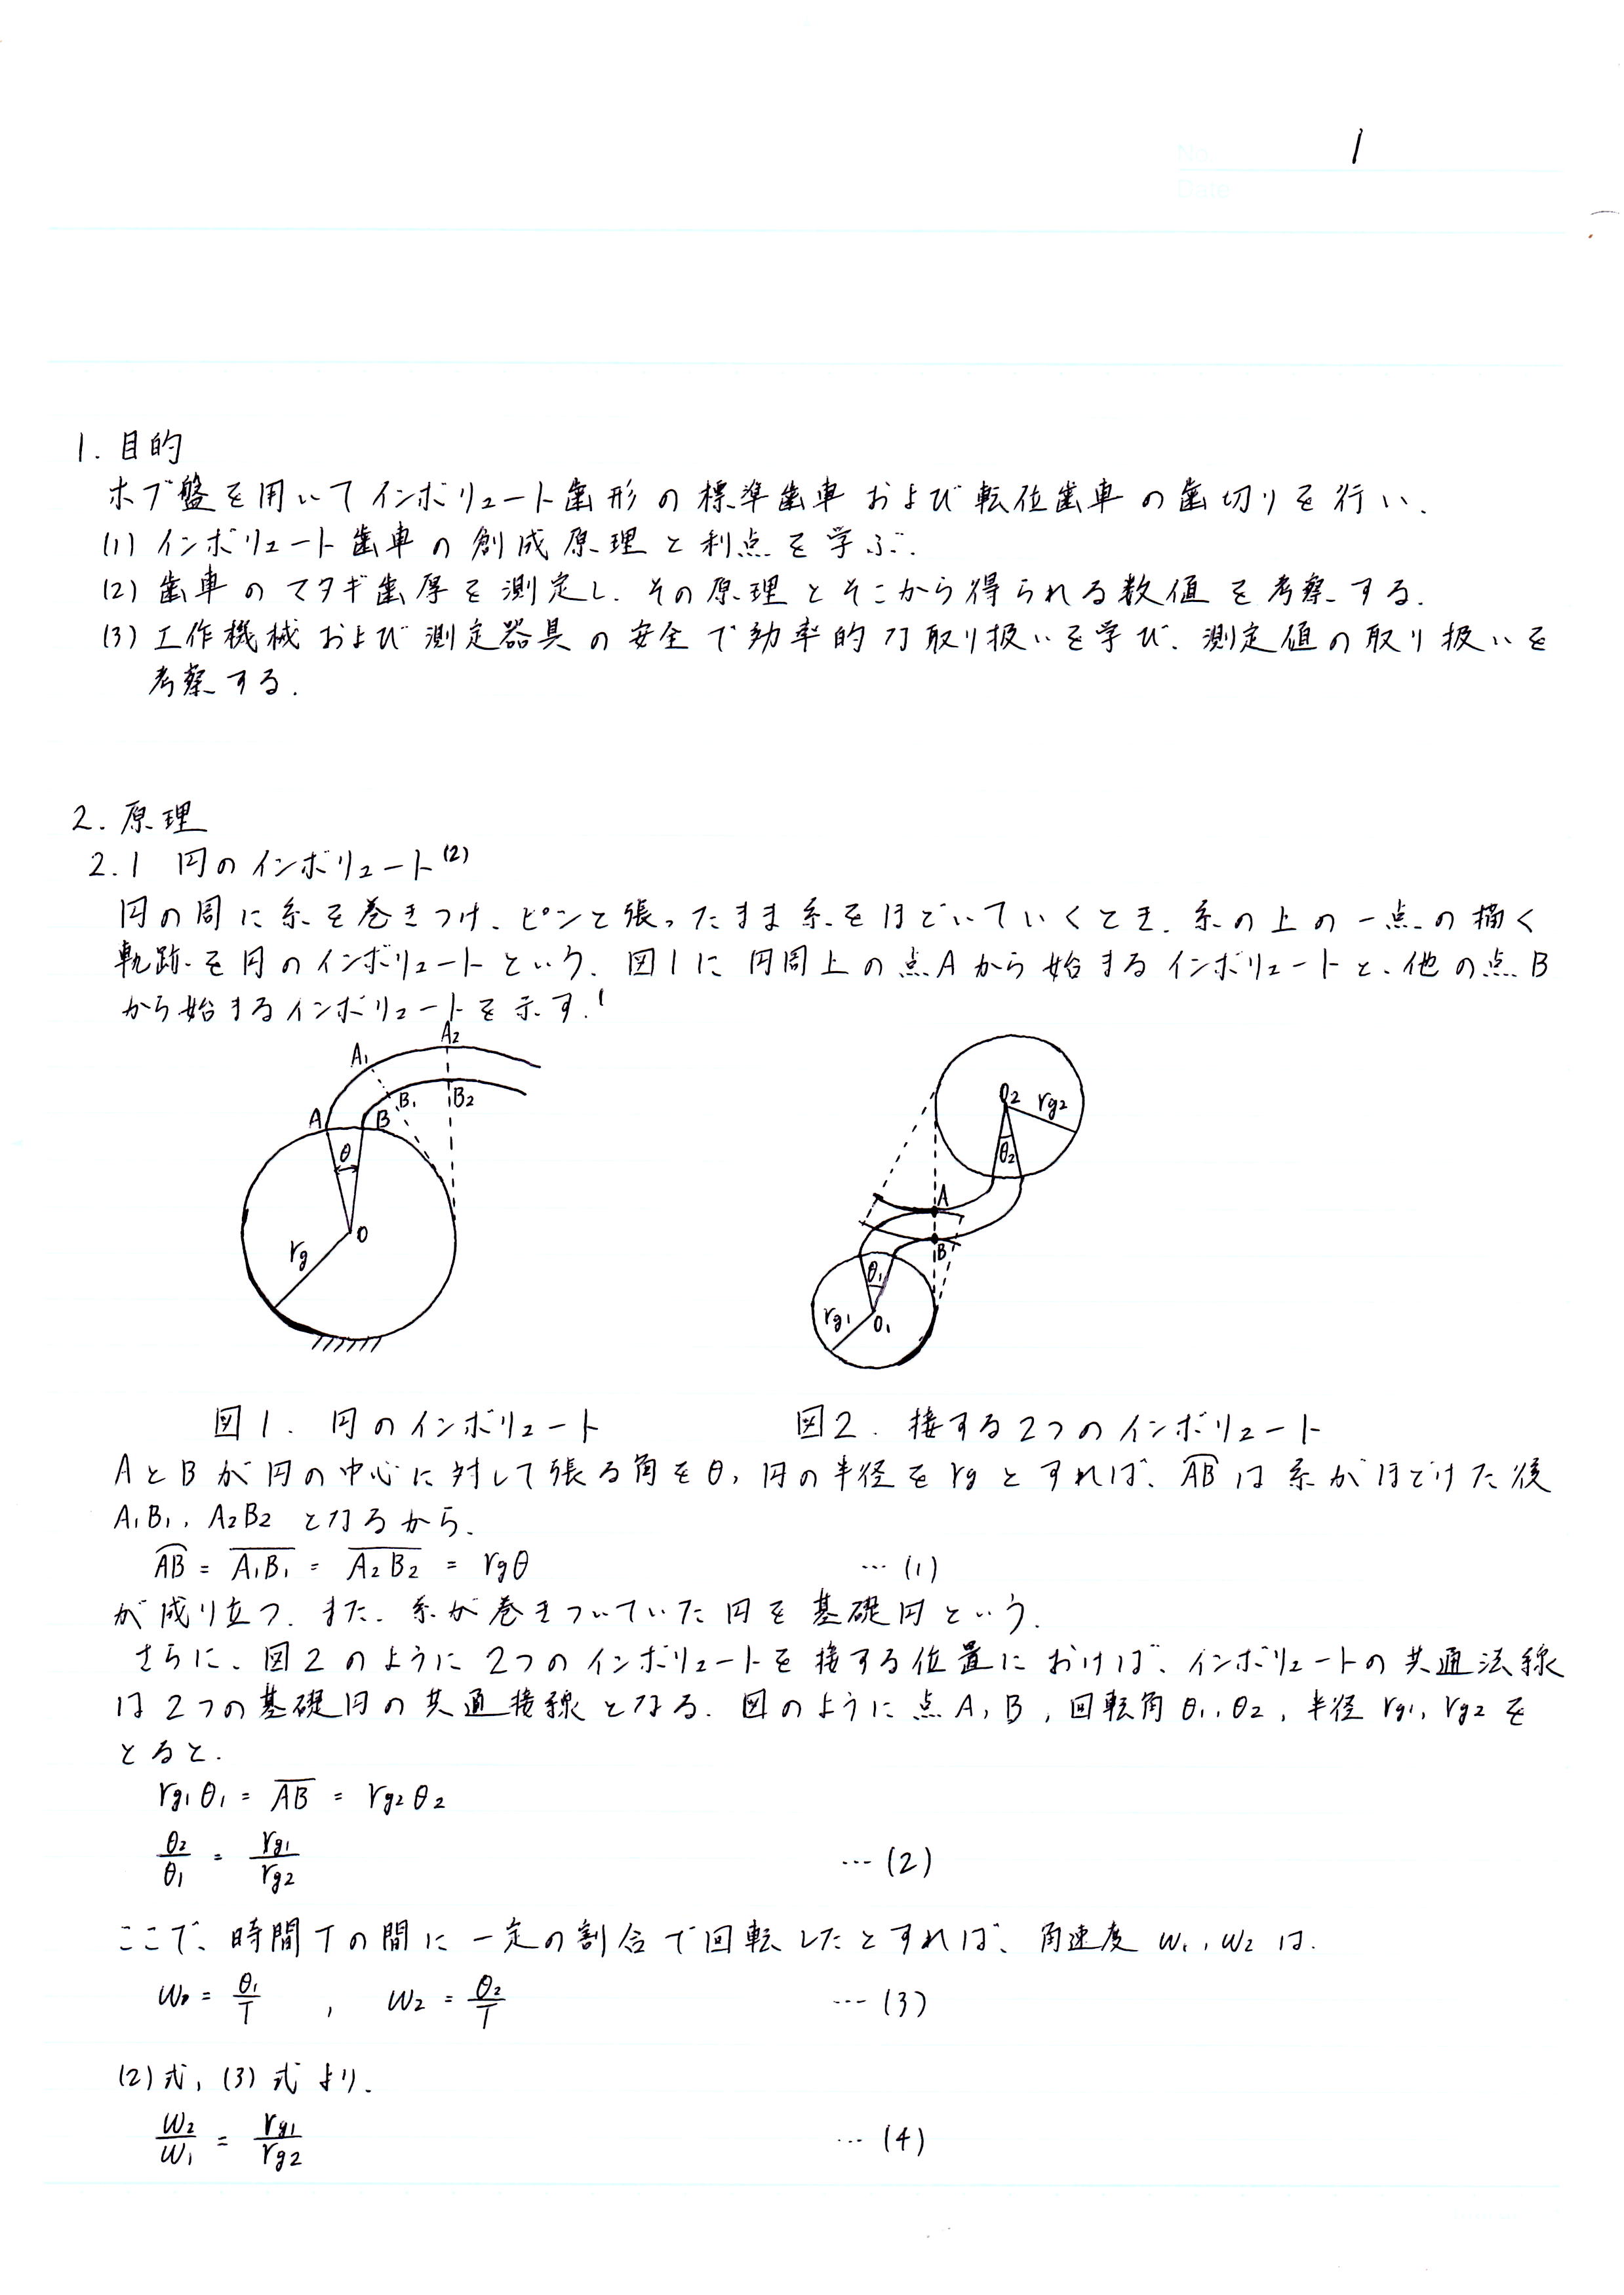 No. 1
Date
1. 目的
ホブ盤を用いてインボリュート歯形の標準歯車および転位歯車の歯切りを行い、
(1) インボリュート歯車の創成原理と利点を学ぶ.
(2) 歯車のマタギ歯厚を測定し、その原理とそこから得られる数値を考察する.
(3) 工作機械および測定器具の安全で効率的な取り扱いを学び、測定値の取り扱いを
考察する.
2. 原理
2.1 円のインボリュート(2)
円の周に糸を巻きつけ、ピンと張ったまま糸をほどいていくとき、糸の上の一点の描く
軌跡を円のインボリュートという. 図1に円周上の点Aから始まるインボリュートと、他の点B
から始まるインボリュートを示す.
A2
A1
B1
B2
A
B
θ
O
rg
O2
rg2
θ2
A
B
θ1
rg1
O1
図1. 円のインボリュート
図2. 接する2つのインボリュート
AとBが円の中心に対して張る角をθ, 円の半径をrgとすれば、A͡Bは糸がほどけた後
A1B1, A2B2 となるから、
A͡B = \overline{A1B1} = \overline{A2B2} = rgθ …(1)
が成り立つ. また、糸が巻きついていた円を基礎円という.
さらに、図2のように2つのインボリュートを接する位置におけば、インボリュートの共通法線
は2つの基礎円の共通接線となる. 図のように点A, B, 回転角θ1, θ2, 半径rg1, rg2を
とると、
rg1θ1 = \overline{AB} = rg2θ2
θ2/θ1 = rg1/rg2 …(2)
ここで、時間Tの間に一定の割合で回転したとすれば、角速度ω1, ω2は、
ω1 = θ1/T , ω2 = θ2/T …(3)
(2)式, (3)式より、
ω2/ω1 = rg1/rg2 …(4)